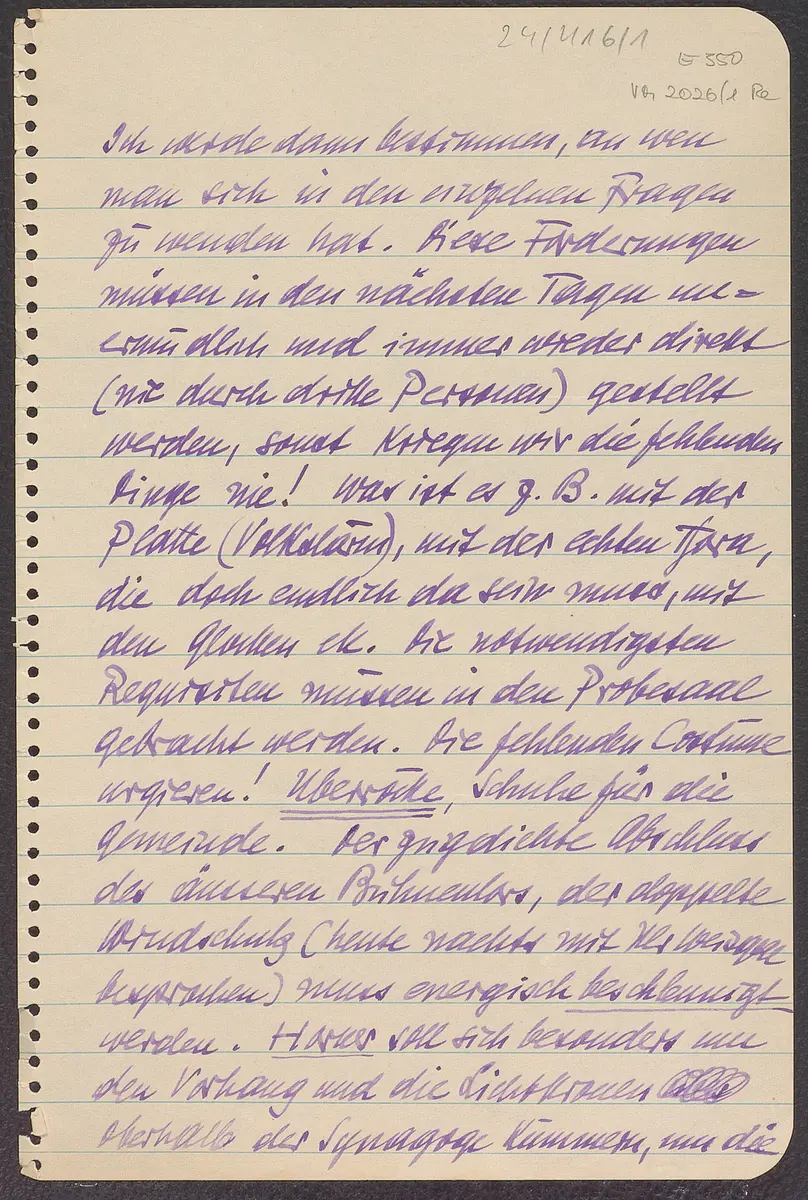 24/U16/1
E 550
VM 2026/1 Re
Ich werde dann bestimmen, an wen
man sich in den einzelnen Fragen
zu wenden hat. Diese Forderungen
müssen in den nächsten Tagen un=
ermüdlich und immer wieder direkt
(nie durch dritte Personen) gestellt
werden, sonst kriegen wir die fehlenden
Dinge nie! Was ist es z. B. mit der
Platte (Volkslärm), mit der echten Thora,
die doch endlich da sein muss, mit
den Glocken etc. Die notwendigsten
Requisiten müssen in den Probesaal
gebracht werden. Die fehlenden Costüme
urgieren! Überröcke, Schuhe für die
Gemeinde. Der zugdichte Abschluss
des äusseren Bühnentors, der doppelte
Windschutz (heute nachts mit Hr
besprochen) muss energisch beschleunigt
werden. Horner soll sich besonders um
den Vorhang und die Lichtkronen
oberhalb der Synagoge kümmern, um die